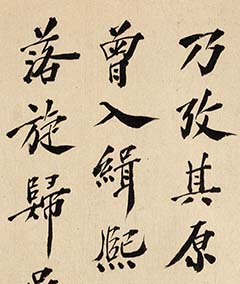 乃攷其原
曾入緝熙
落旋歸